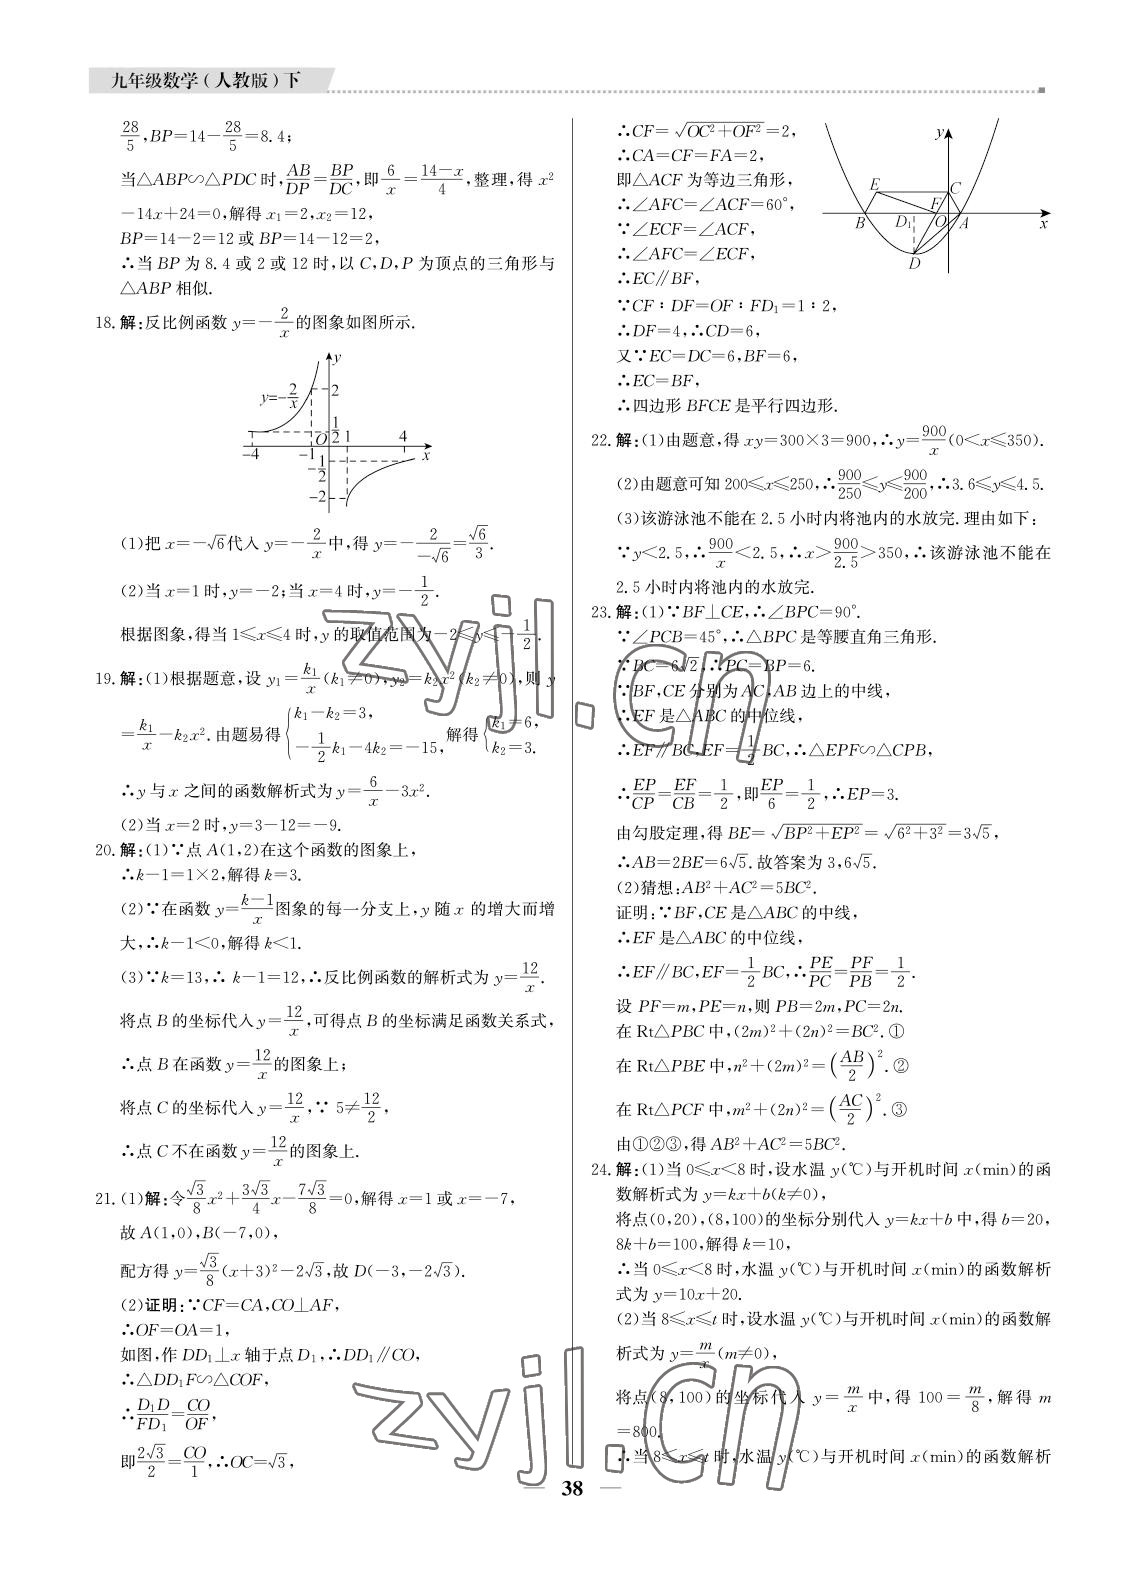 九年级数学(人教版)下
28/5,BP=14-28/5=8.4;
当△ABP∽△PDC时,AB/DP=BP/DC,即6/x=(14-x)/4,整理,得x²
-14x+24=0,解得x₁=2,x₂=12,
BP=14-2=12或BP=14-12=2,
∴当BP为8.4或2或12时,以C,D,P为顶点的三角形与
△ABP相似.
18.解:反比例函数y=-2/x的图象如图所示.
y
y=-2/x
2
1/2
O 1 4
-4 -1 x
-1/2
-2
(1)把x=-√6代入y=-2/x中,得y=-2/(-√6)=√6/3.
(2)当x=1时,y=-2;当x=4时,y=-1/2.
根据图象,得当1≤x≤4时,y的取值范围为-2≤y≤-1/2.
19.解:(1)根据题意,设y₁=k₁/x(k₁≠0),y₂=k₂x²(k₂≠0),则y
=k₁/x-k₂x².由题易得{k₁-k₂=3, -1/2k₁-4k₂=-15, 解得{k₁=6, k₂=3.
∴y与x之间的函数解析式为y=6/x-3x².
(2)当x=2时,y=3-12=-9.
20.解:(1)∵点A(1,2)在这个函数的图象上,
∴k-1=1×2,解得k=3.
(2)∵在函数y=(k-1)/x图象的每一分支上,y随x的增大而增
大,∴k-1<0,解得k<1.
(3)∵k=13,∴k-1=12,∴反比例函数的解析式为y=12/x.
将点B的坐标代入y=12/x,可得点B的坐标满足函数关系式,
∴点B在函数y=12/x的图象上;
将点C的坐标代入y=12/x,∵5≠12/2,
∴点C不在函数y=12/x的图象上.
21.(1)解:令√3/8x²+3√3/4x-7√3/8=0,解得x=1或x=-7,
故A(1,0),B(-7,0),
配方得y=√3/8(x+3)²-2√3,故D(-3,-2√3).
(2)证明:∵CF=CA,CO⊥AF,
∴OF=OA=1,
如图,作DD₁⊥x轴于点D₁,∴DD₁∥CO,
∴△DD₁F∽△COF,
∴D₁D/FD₁=CO/OF,
即2√3/2=CO/1,∴OC=√3,
∴CF=√(OC²+OF²)=2,
∴CA=CF=FA=2,
即△ACF为等边三角形,
∴∠AFC=∠ACF=60°,
∵∠ECF=∠ACF,
∴∠AFC=∠ECF,
∴EC∥BF,
∵CF∶DF=OF∶FD₁=1∶2,
∴DF=4,∴CD=6,
又∵EC=DC=6,BF=6,
∴EC=BF,
∴四边形BFCE是平行四边形.
y
E C
F
B D₁ O A x
D
22.解:(1)由题意,得xy=300×3=900,∴y=900/x(0<x≤350).
(2)由题意可知200≤x≤250,∴900/250≤y≤900/200,∴3.6≤y≤4.5.
(3)该游泳池不能在2.5小时内将池内的水放完.理由如下:
∵y<2.5,∴900/x<2.5,∴x>900/2.5>350,∴该游泳池不能在
2.5小时内将池内的水放完.
23.解:(1)∵BF⊥CE,∴∠BPC=90°.
∵∠PCB=45°,∴△BPC是等腰直角三角形.
∵BC=6√2,∴PC=BP=6.
∵BF,CE分别为AC,AB边上的中线,
∴EF是△ABC的中位线,
∴EF∥BC,EF=1/2BC,∴△EPF∽△CPB,
∴EP/CP=EF/CB=1/2,即EP/6=1/2,∴EP=3.
由勾股定理,得BE=√(BP²+EP²)=√(6²+3²)=3√5,
∴AB=2BE=6√5.故答案为3,6√5.
(2)猜想:AB²+AC²=5BC².
证明:∵BF,CE是△ABC的中线,
∴EF是△ABC的中位线,
∴EF∥BC,EF=1/2BC,∴PE/PC=PF/PB=1/2.
设PF=m,PE=n,则PB=2m,PC=2n.
在Rt△PBC中,(2m)²+(2n)²=BC².①
在Rt△PBE中,n²+(2m)²=(AB/2)².②
在Rt△PCF中,m²+(2n)²=(AC/2)².③
由①②③,得AB²+AC²=5BC².
24.解:(1)当0≤x<8时,设水温y(℃)与开机时间x(min)的函
数解析式为y=kx+b(k≠0),
将点(0,20),(8,100)的坐标分别代入y=kx+b中,得b=20,
8k+b=100,解得k=10,
∴当0≤x<8时,水温y(℃)与开机时间x(min)的函数解析
式为y=10x+20.
(2)当8≤x≤t时,设水温y(℃)与开机时间x(min)的函数解
析式为y=m/x(m≠0),
将点(8,100)的坐标代入y=m/x中,得100=m/8,解得m
=800.
∴当8≤x≤t时,水温y(℃)与开机时间x(min)的函数解析
38
zyjl.cn
zyjl.cn